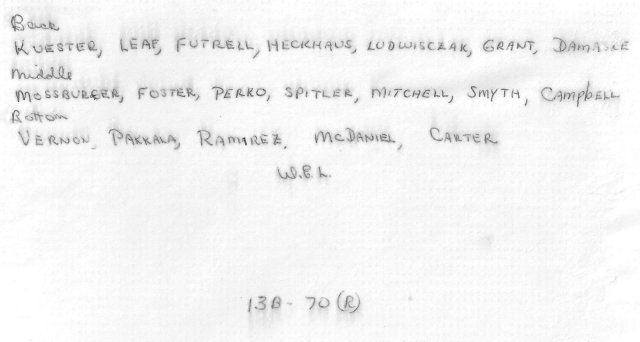 Back
KUESTER, LEAF, FUTRELL, HECKHAUS, LUDWISCZAK, GRANT,
Middle
MOSSBURGER, FOSTER, PERKO, SPITLER, MITCHELL, SMYTH, CAMPBELL
Bottom
VERNON, PAKKALA, RAMIREZ, McDANIEL, CARTER
W.E.L.
13B - 70 (R)